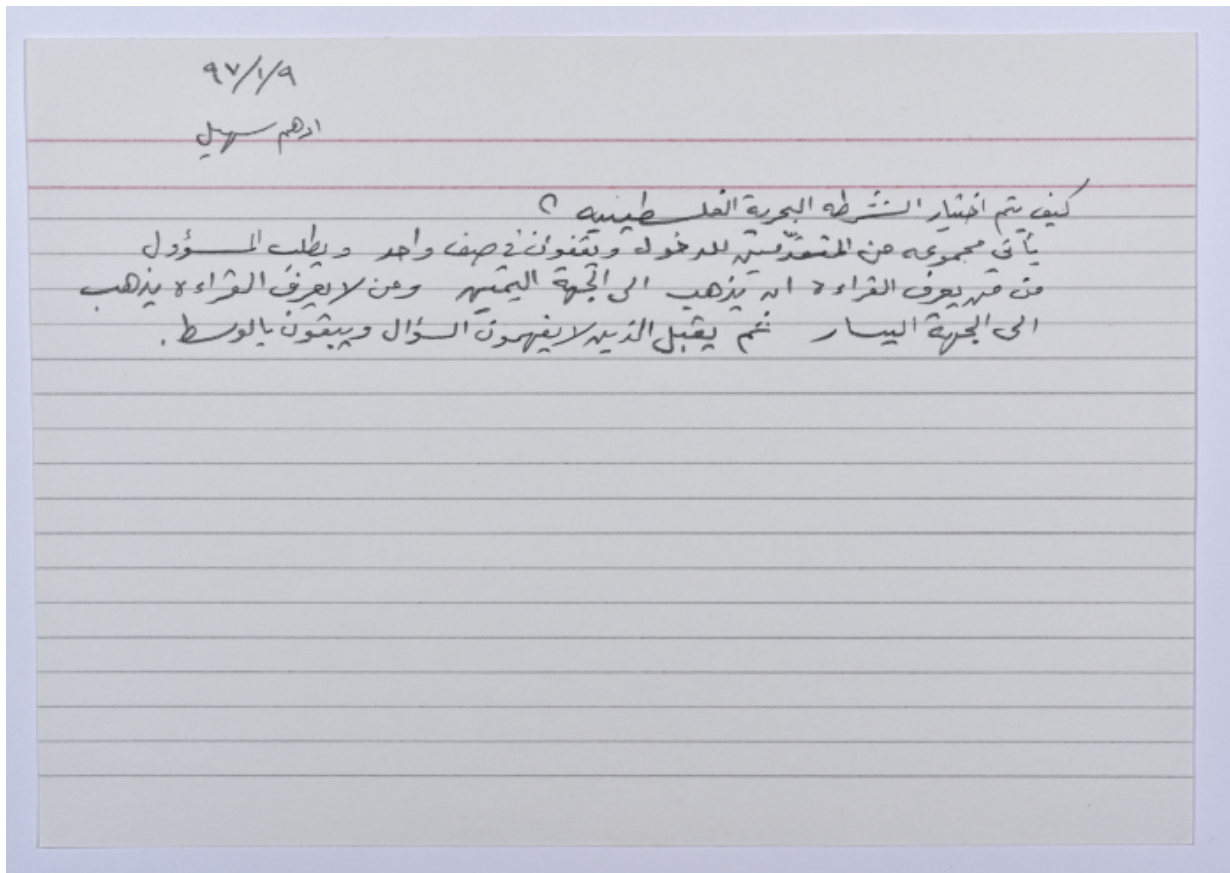 ٩٧/١/٩
ادهم سهيل
كيف يتم اختيار الشرطه البحرية الفلسطينيه ؟
يأتي مجموعه من المتقدمين للدخول ويقفوان في صف واحد ويطلب المسؤول
من من يعرف القراءة ان يذهب الى الجهة اليمين ومن لا يعرف القراءة يذهب
الى الجهة اليسار ثم يقبل الذين لا يفهمون السؤال ويبقون بالوسط .